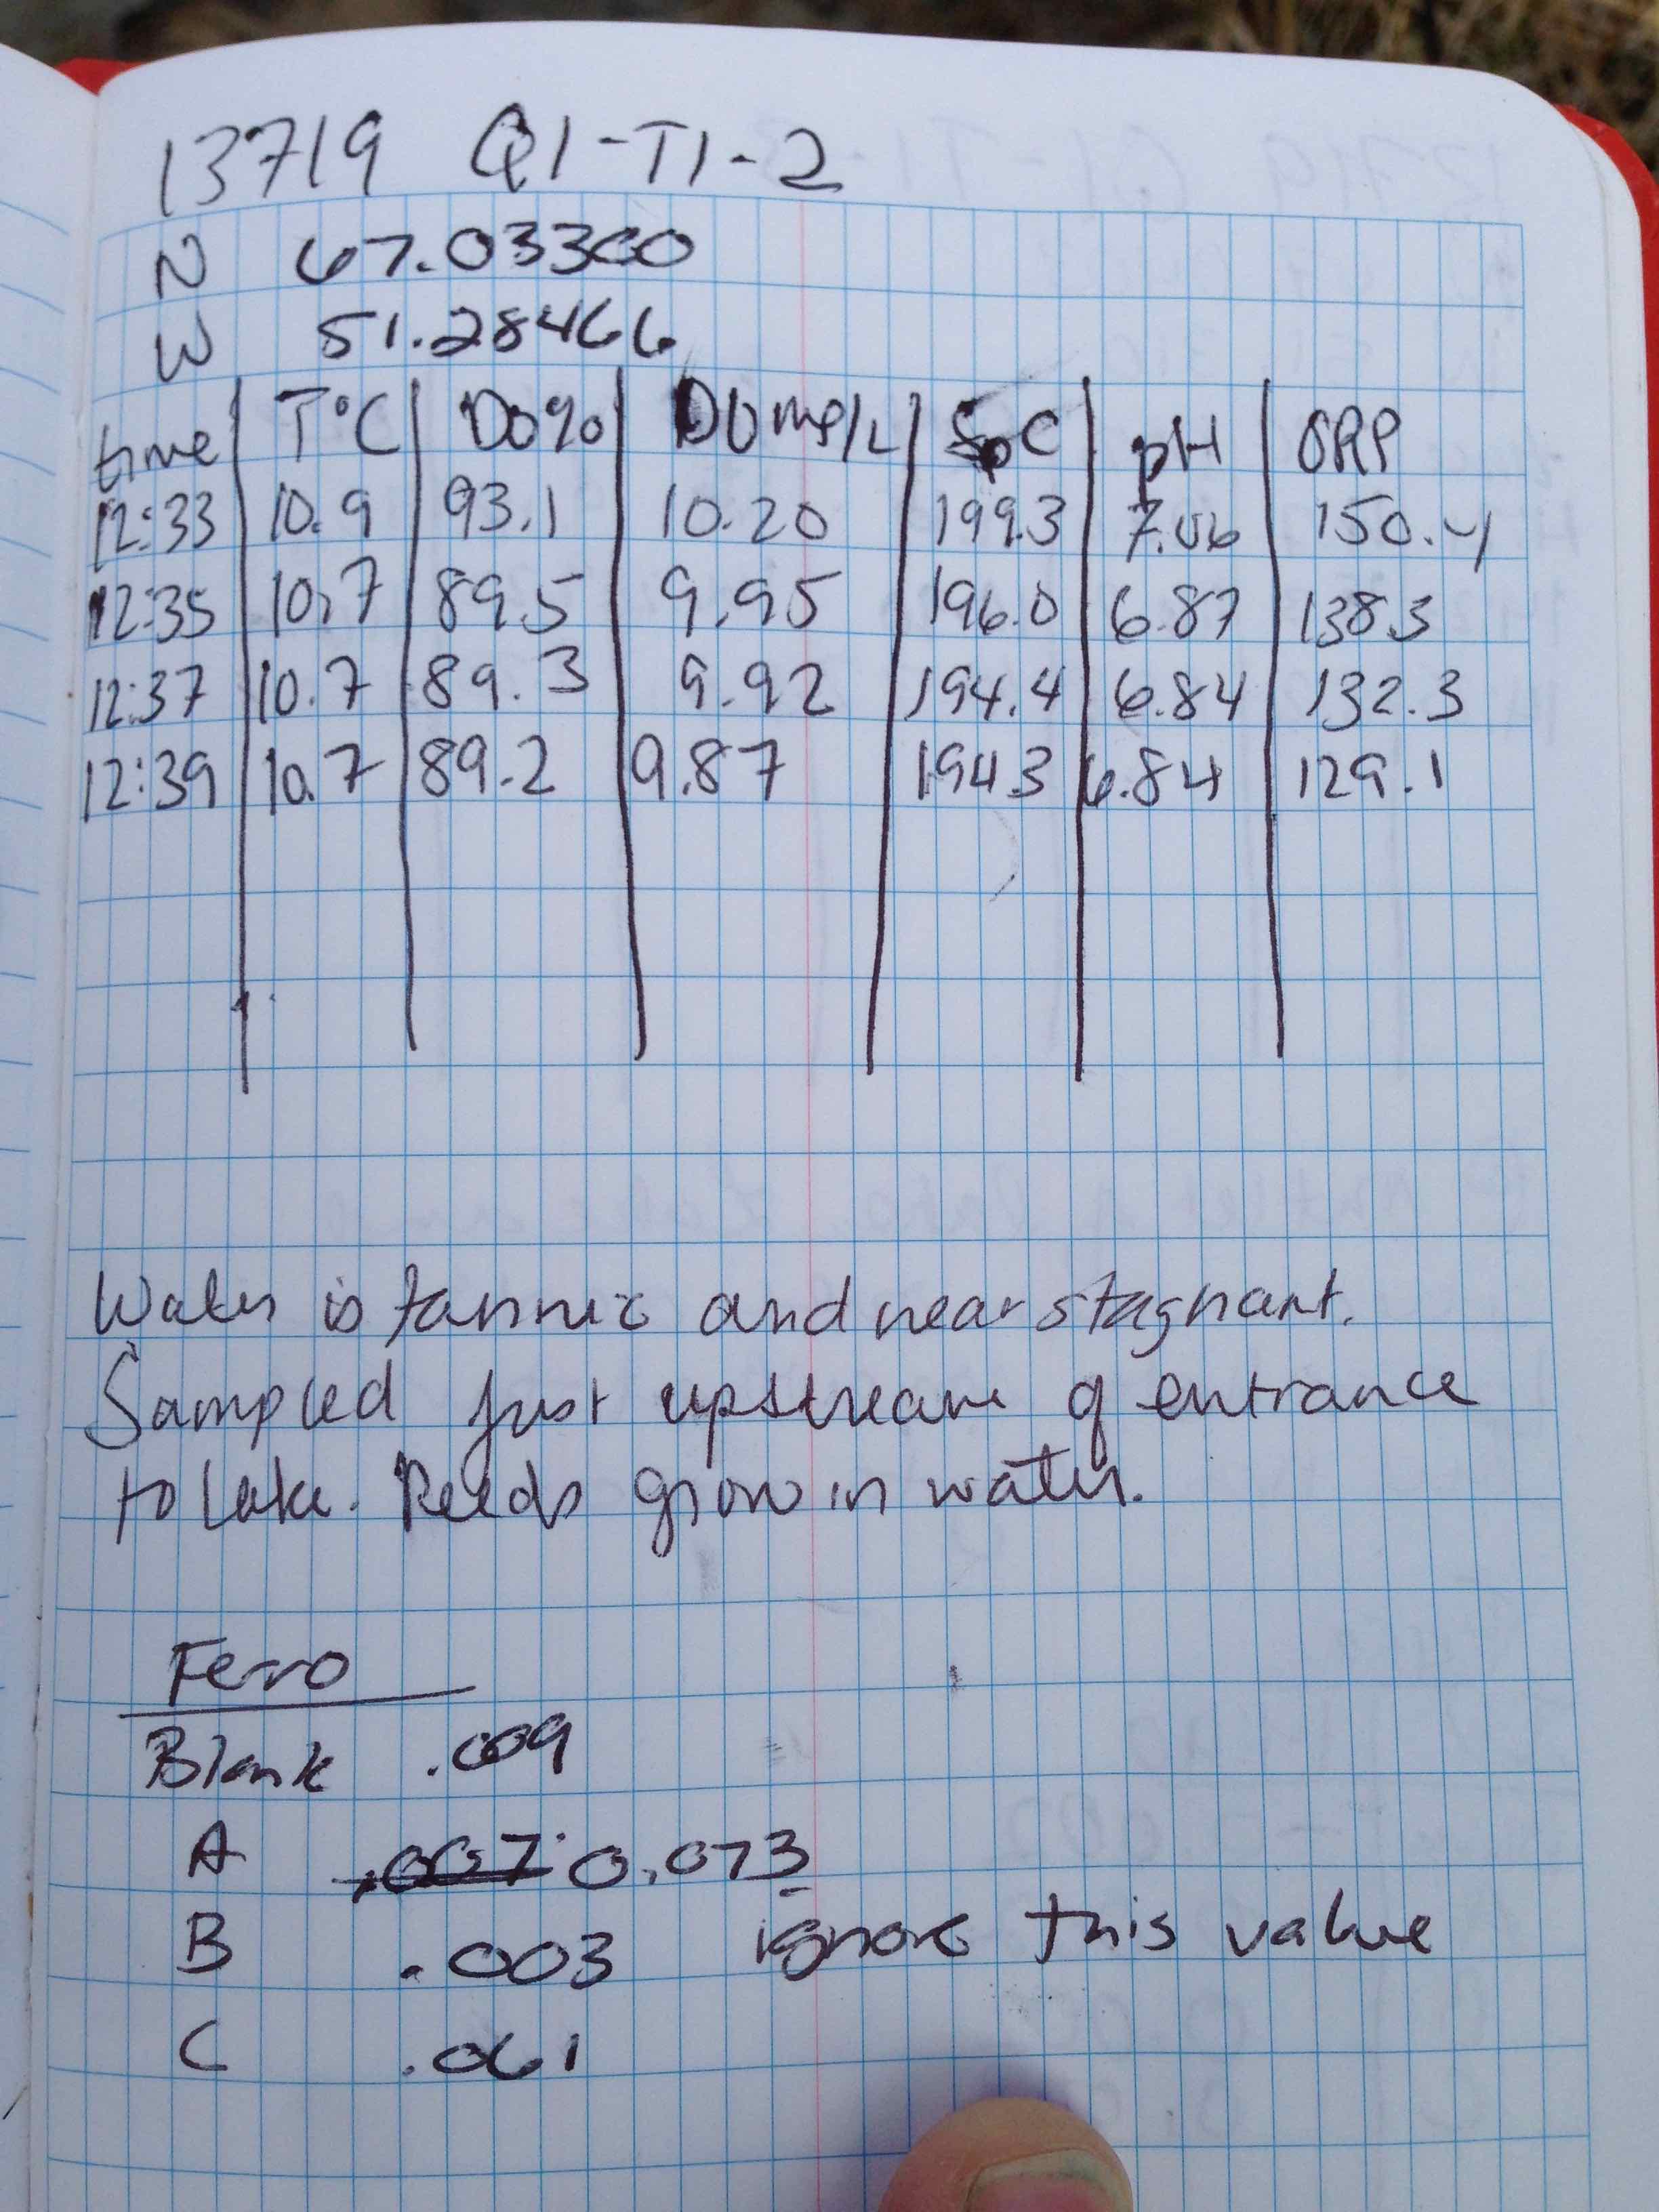 13719 Q1-T1-2
N 67.03300
W 51.28466
time T°C DO% DO mg/L SpC pH ORP
12:33 10.9 93.1 10.20 199.3 7.06 150.4
12:35 10.7 89.5 9.95 196.0 6.87 138.3
12:37 10.7 89.3 9.92 194.4 6.84 132.3
12:39 10.7 89.2 9.87 194.3 6.84 129.1
Water is tannic and near stagnant.
Sampled just upstream of entrance
to lake. Reeds grow in water.
Ferro
Blank .009
A .007 0.073
B .003 ignore this value
C .061